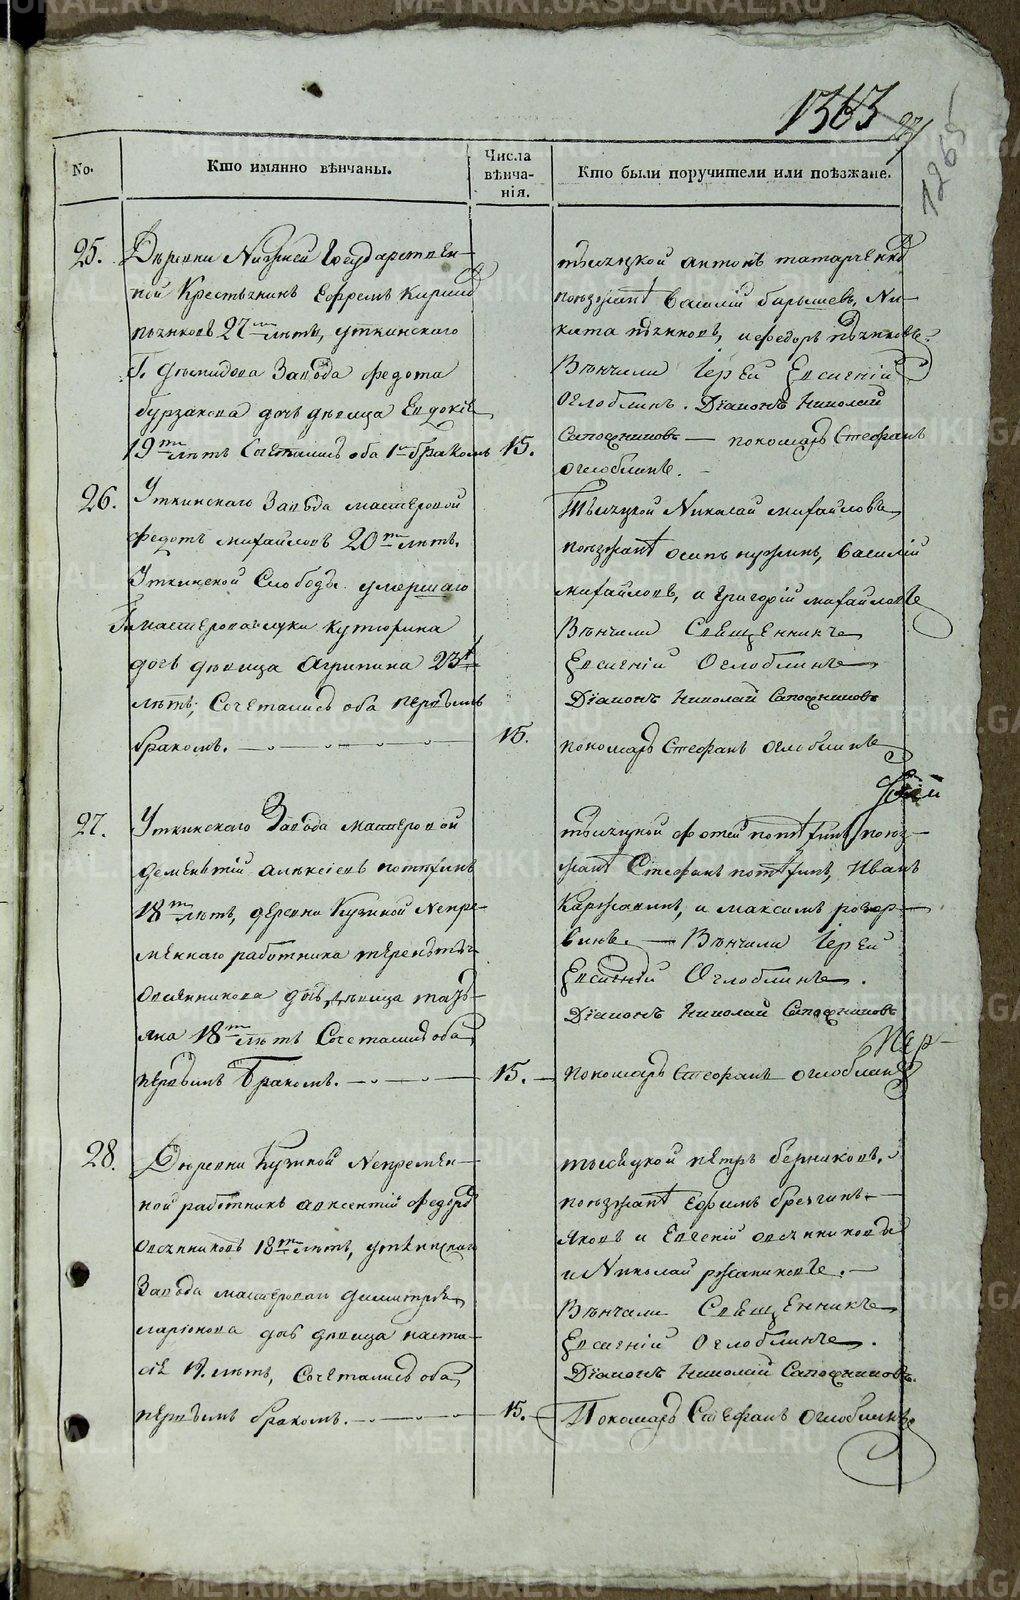 METRIKI.GASO-URAL.RU
1363
27
1265
No.
Кто имянно вѣнчаны.
Числа вѣнча-нія.
Кто были поручители или поѣзжане.
25.
Деревни Нижней Государствен-
ной Крестьянинъ Ефремъ Кирилов
пьянковъ 27ми лѣтъ, уткинскаго
Г. Демидова Завода федота
бурзакова дочь девица Евдокiя
19ти лѣтъ Сочетались оба 1мъ бракомъ
15.
тысяцкой антонъ татарченков
поезжант Василiй барышевъ, Ни-
кита пьянковъ, и федоръ пьянковы.
Вѣнчали Iерей Евсигнiй
Оглоблинъ. Дiаконъ Николай
Сапожниковъ — пономарь Стефанъ
оглоблинъ. —
26.
Уткинскаго Завода мастеровой
федотъ михайловъ 20ти лѣтъ,
Уткинской Слободы умершаго
мастероваго луки кутюхина
дочь девица Агрипина 23х
лѣтъ, Сочетались оба первымъ
бракомъ.
15.
Тысяцкой Николай михайловъ,
поезжант осипъ пужинъ, Василiй
михайловъ, и григорiй михайловъ
Вѣнчали Священникъ
Евсигнiй Оглоблинъ
Дiаконъ Николай Сапожниковъ
пономарь Стефанъ оглоблинъ
27.
Уткинскаго Завода мастеровой
дементiй алексiевъ поттфинъ
18ти лѣтъ, деревни Кузиной Непре-
меннаго работника терентья
Овсянникова дочь девица татья-
яна 18ти лѣтъ Сочетались оба
первымъ Бракомъ.
15.
тысяцкой фотей поттфинъ поез-
жант Стефанъ поттфинъ, Иванъ
Каржавинъ, и максимъ
Вѣнчали Iерей
Евсигнiй Оглоблинъ.
Дiаконъ Николай Сапожниковъ
пономарь Стефанъ оглоблинъ
28.
Деревни Кузиной Непремен-
ной работникъ авксентiй федоровъ
Овсянниковъ 18ти лѣтъ, уткинскаго
Завода мастероваго димитрiя
ларiонова дочь девица наста-
сiя 19. лѣтъ, Сочетались оба
первымъ бракомъ.
15.
тысяцкой петръ берниковъ,
поезжант Ефимъ брезгинъ
Яковъ и Евгенiй овсянниковы
и Николай ржанниковъ.
Вѣнчали Священникъ
Евсигнiй Оглоблинъ.
Дiаконъ Николай Сапожниковъ.
Пономарь Стефанъ оглоблинъ